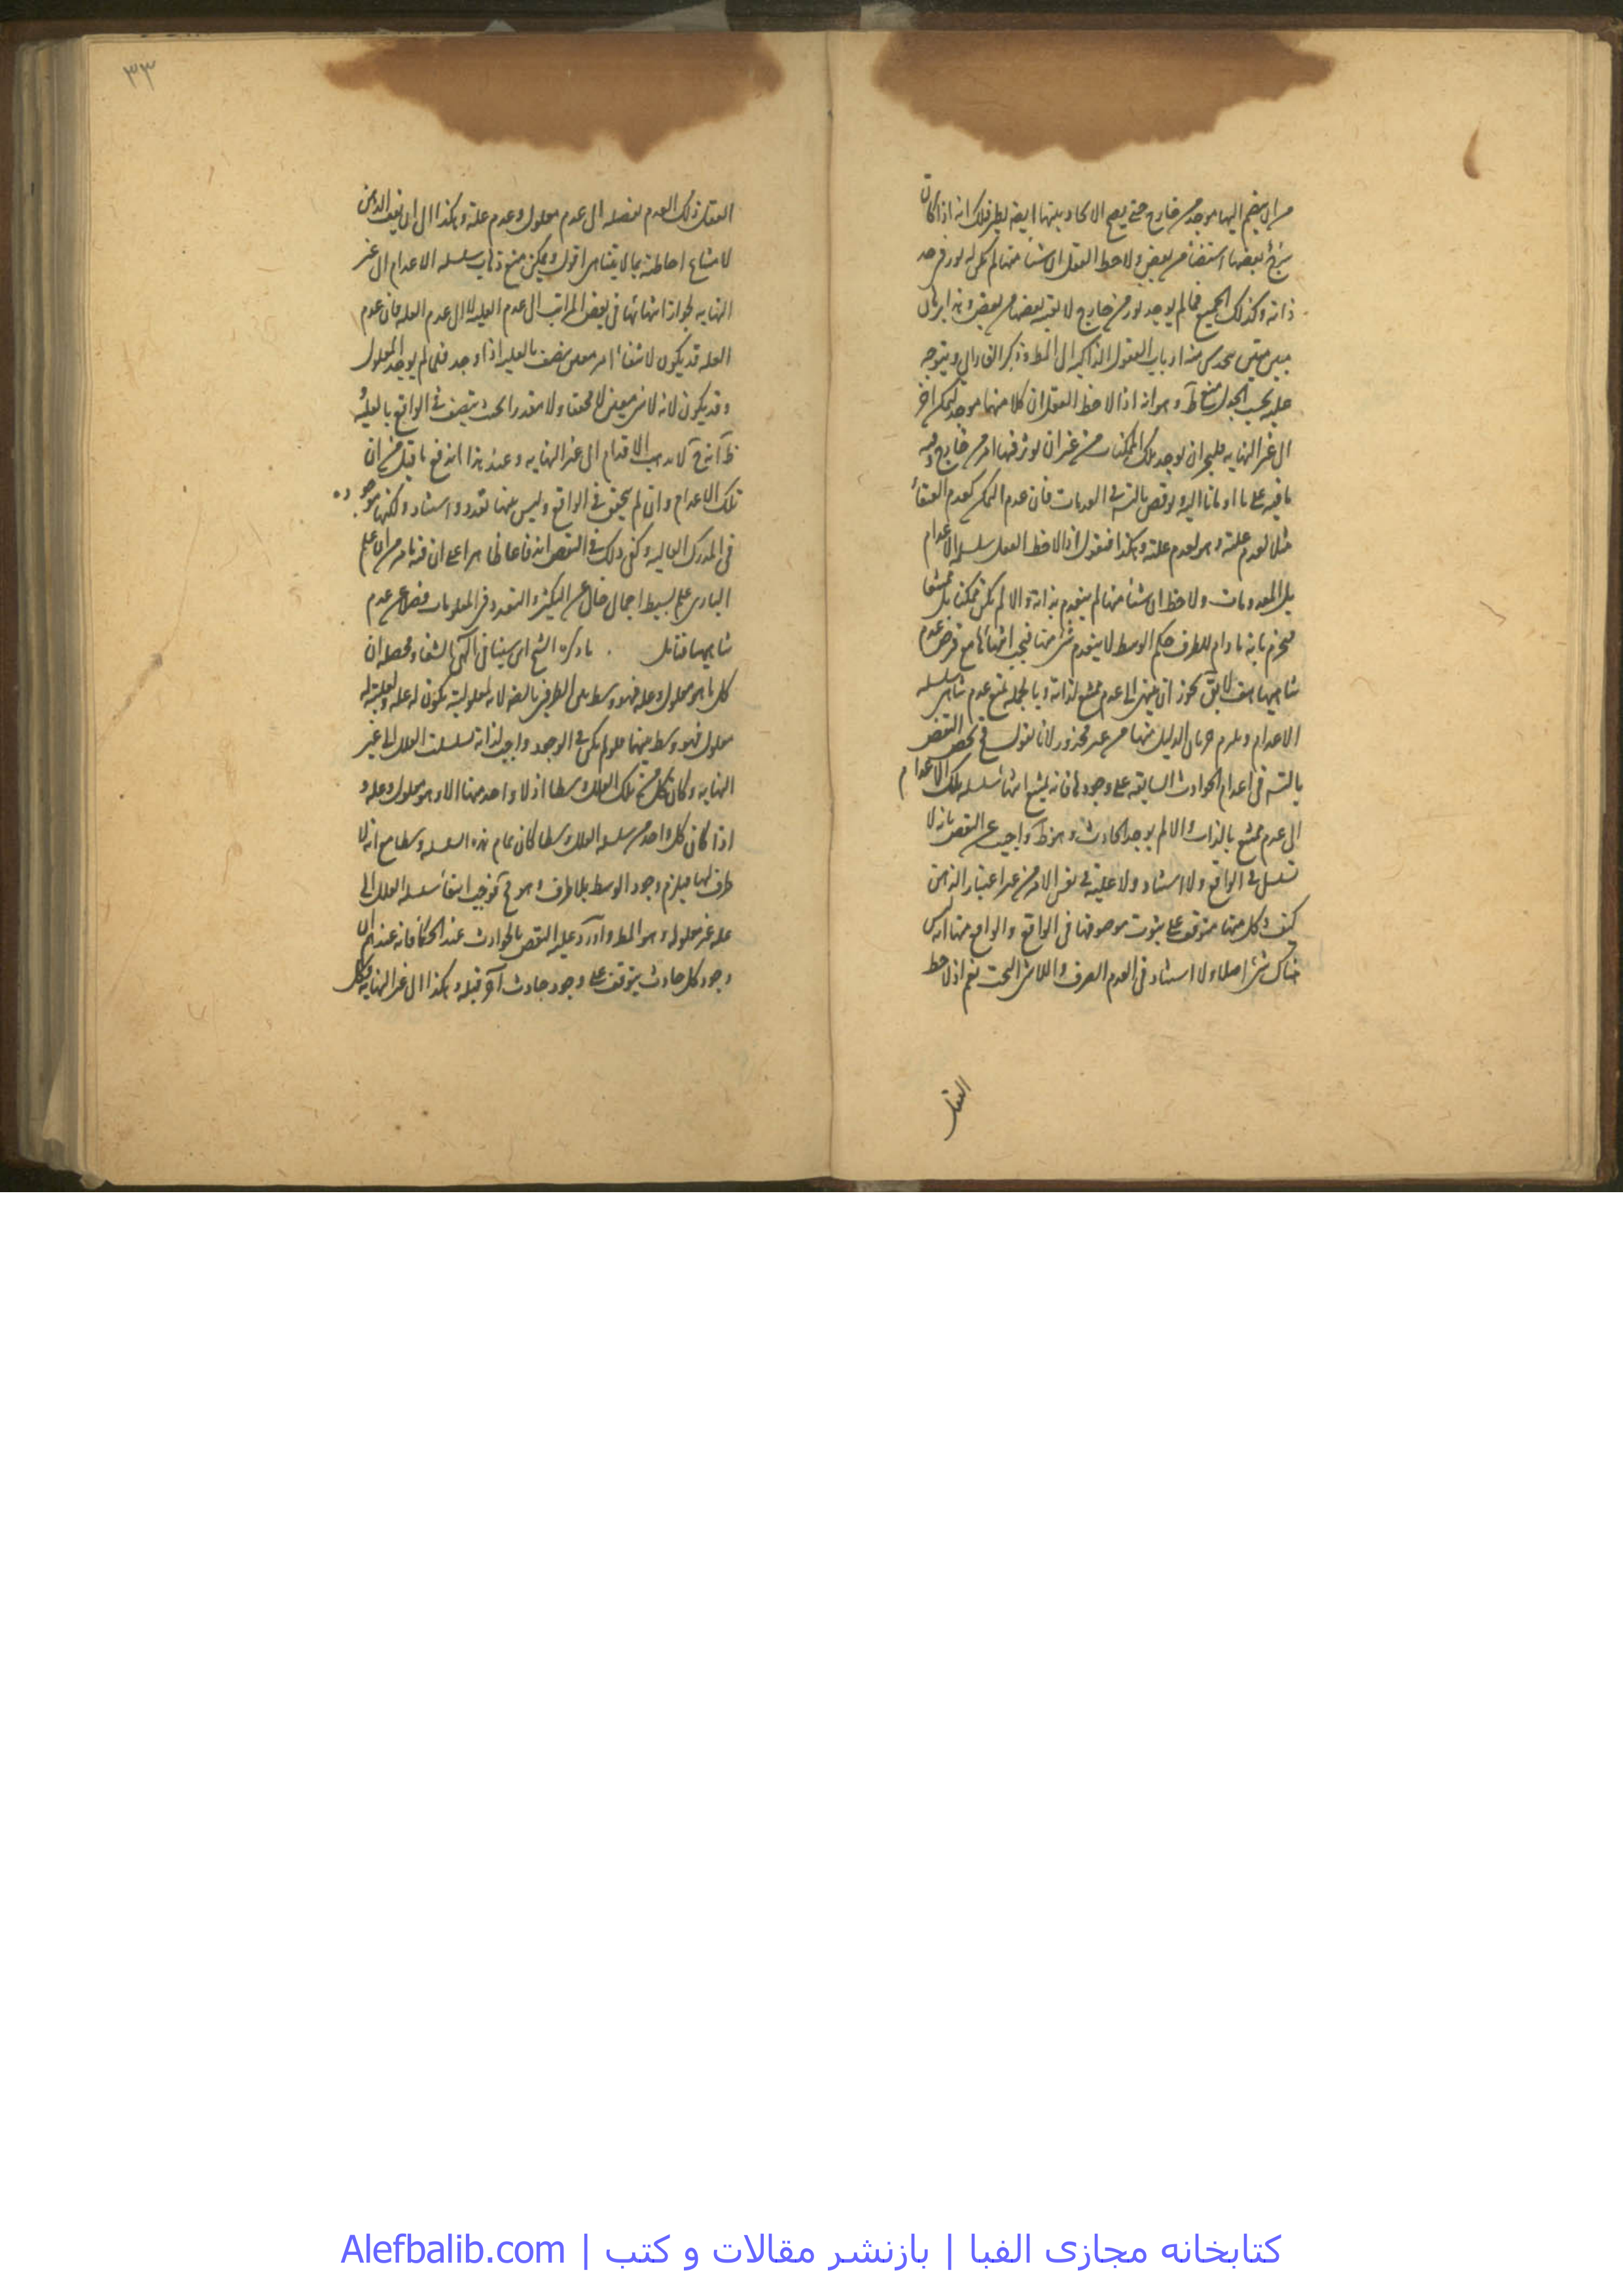 من ان ينضم اليها موجد من خارج حتى يصح الايجاد بينها ايضه ليظهر لك انه اذا كان
شئ بعضها استضاء من بعض ولاحظ العقل ان شيئا منها لم يكن له نور من حد
ذاته وكذلك الجميع فما لم يوجد نور من خارج لا
ارباب العقول الذاكية الى المط وذكر الفارابى ويتوجه
عليه بحسب الجدل منع ظ وهو انه اذا لاحظ العقل ان كلا منها موجد لممكن آخر
الى غير النهايه فليجز ان يوجد تلك الممكنات من غير ان يؤثر فيها امر من خارج وفيه
ما فيه على ما اومأنا اليه ونوقض بالتس فى العدمات فان عدم الممكن كعدم العنقاء
مثلا لعدم علته وهو لعدم علته وهكذا فنقول اذا لاحظ العقل سلسله الاعدام
بل المعدومات ولاحظ ان شيئا منها لم ينعدم بذاته والا لم يكن ممكنا بل ممتنعا
فيجزم بانه ما دام للطرف حكم الوسط لا ينعدم شئ منها فيجب انتهائها مع فرض عدم
تناهيها هف لا يق يجوز ان ينتهى الى عدم ممتنع لذاته وبالجمله نمنع عدم تناهى سلسله
الاعدام ويلزم جريان الدليل فيها من غير محذور لانا نقول نخصص النقض
بالتس فى اعدام الحوادث السابقه على وجودها فانه يمتنع انتهاء سلسله تلك الاعدام
الى عدم ممتنع بالذات والا لم يوجد الحادث وهو ظ واجيب عن النقض بانه لا
تسلسل فى الواقع ولا استناد ولا عليته فى نفس الامر من غير اعتبار الذهن
كيف وكل منها متوقف على ثبوت موصوفها فى الواقع والواقع منها ان ليس
هناك شئ اصلا ولا استناد فى العدم الصرف واللاشئ البحت نعم اذا لاحظ
العقل
٣٣
العقل ذلك العدم يفصله الى عدم معلول وعدم علته وهكذا الى ان يقف الذهن
لامتناع احاطته بما لا يتناهى اقول ويمكن منع ذهاب سلسله الاعدام الى غير
النهايه لجواز انتهائها فى بعض المراتب الى عدم العليه لا الى عدم العله فان عدم
العله قد يكون لانتفاء امر معين يتصف بالعليه اذا وجد فلما لم يوجد لم يوجد المعلول
وقد يكون لانه لا شئ معين لا محققا ولا مقدرا بحيث يتصف فى الواقع بالعليه
ظ انه ح لا يذهب الاعدام الى غير النهايه وعند هذا اندفع ما قيل من ان
تلك الاعدام وان لم يتحقق فى الواقع وليس بينها تعدد واستناد ولكنها موجوده
فى المدارك العاليه وكفى ذلك فى النقض انه على ان فيه ما مر من ان علم
البارى علم بسيط اجمالى خال عن التكثر والتعدد فى المعلومات فضلا عن عدم
تناهيها فتأمل . ما ذكره الشيخ ابن سينا فى الهى الشفاء ومحصله ان
كل ما هو معلول وعله فهو وسط بين الطرفين بالضروره لانه لمعلوليته يكون له عله ولعليته له
معلول فهو وسط بينهما فلو لم يكن فى الوجود واجب لذاته تسلسلت العلل الى غير
النهايه وكان كل من تلك العلل وسطا اذ لا واحد منها الا وهو معلول وعله و
اذا كان كل واحد من سلسله العلل وسطا كان تمام هذه السلسله وسطا مع انه لا
طرف لها فيلزم وجود الوسط بلا طرف وهو مح فوجب انتهاء سلسله العلل الى
عله غير معلوله وهو المط واورد عليه النقض بالحوادث عند الحكماء فانه عندهم ان
وجود كل حادث يتوقف على وجود حادث آخر قبله وهكذا الى غير النهايه فكل
کتابخانه مجازی الفبا | بازنشر مقالات و کتب | Alefbalib.com